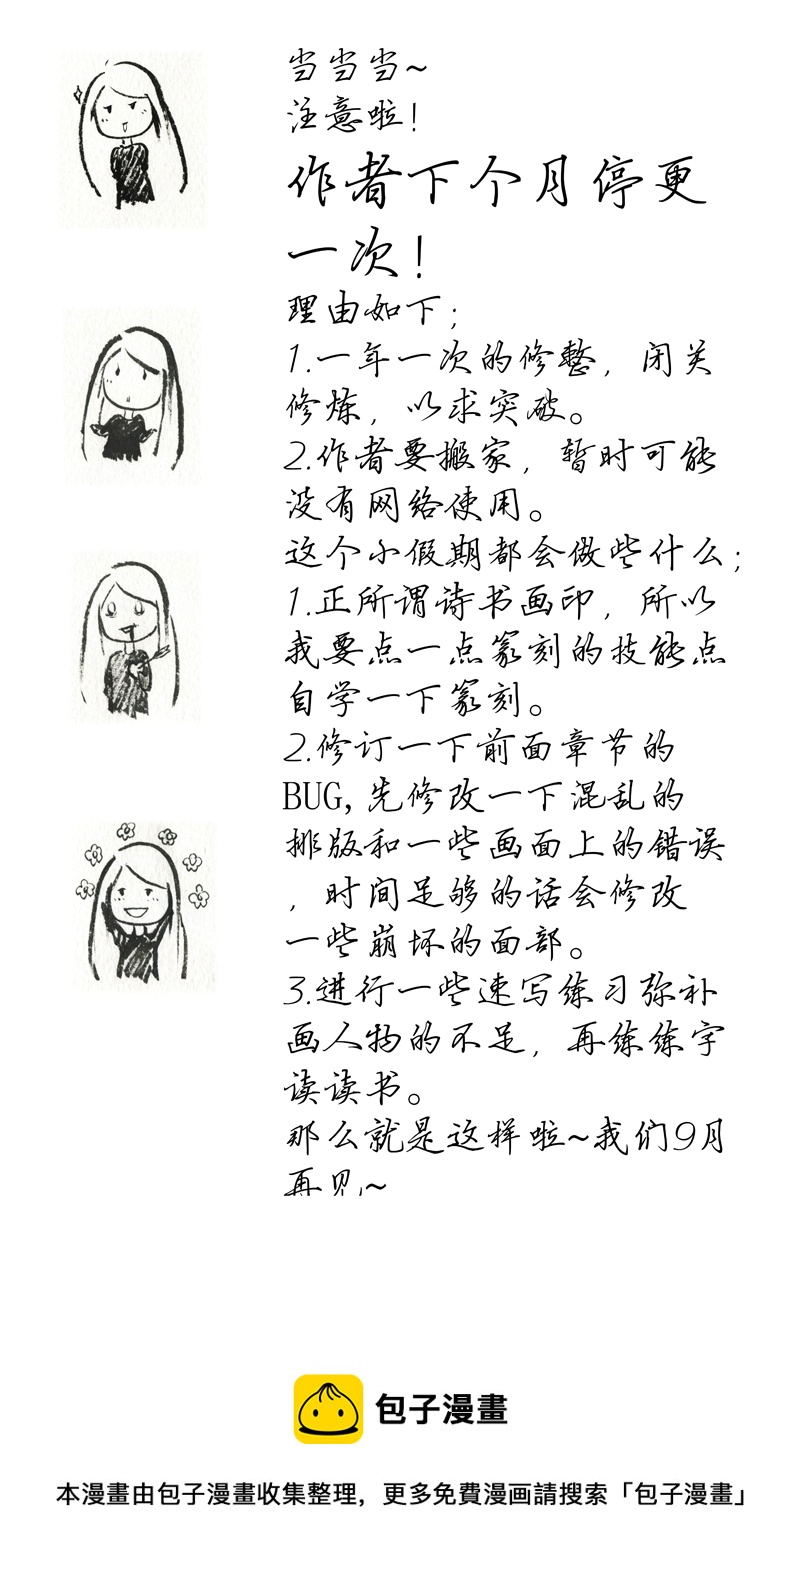 当当当~
注意啦！
作者下个月停更
一次！
理由如下；
1.一年一次的修整，闭关
修炼，以求突破。
2.作者要搬家，暂时可能
没有网络使用。
这个小假期都会做些什么；
1.正所谓诗书画印，所以
我要点一点篆刻的技能点
自学一下篆刻。
2.修订一下前面章节的
BUG,先修改一下混乱的
排版和一些画面上的错误
，时间足够的话会修改
一些崩坏的面部。
3.进行一些速写练习弥补
画人物的不足，再练练字
读读书。
那么就是这样啦~我们9月
再见~
包子漫畫
本漫畫由包子漫畫收集整理，更多免費漫画請搜索「包子漫畫」